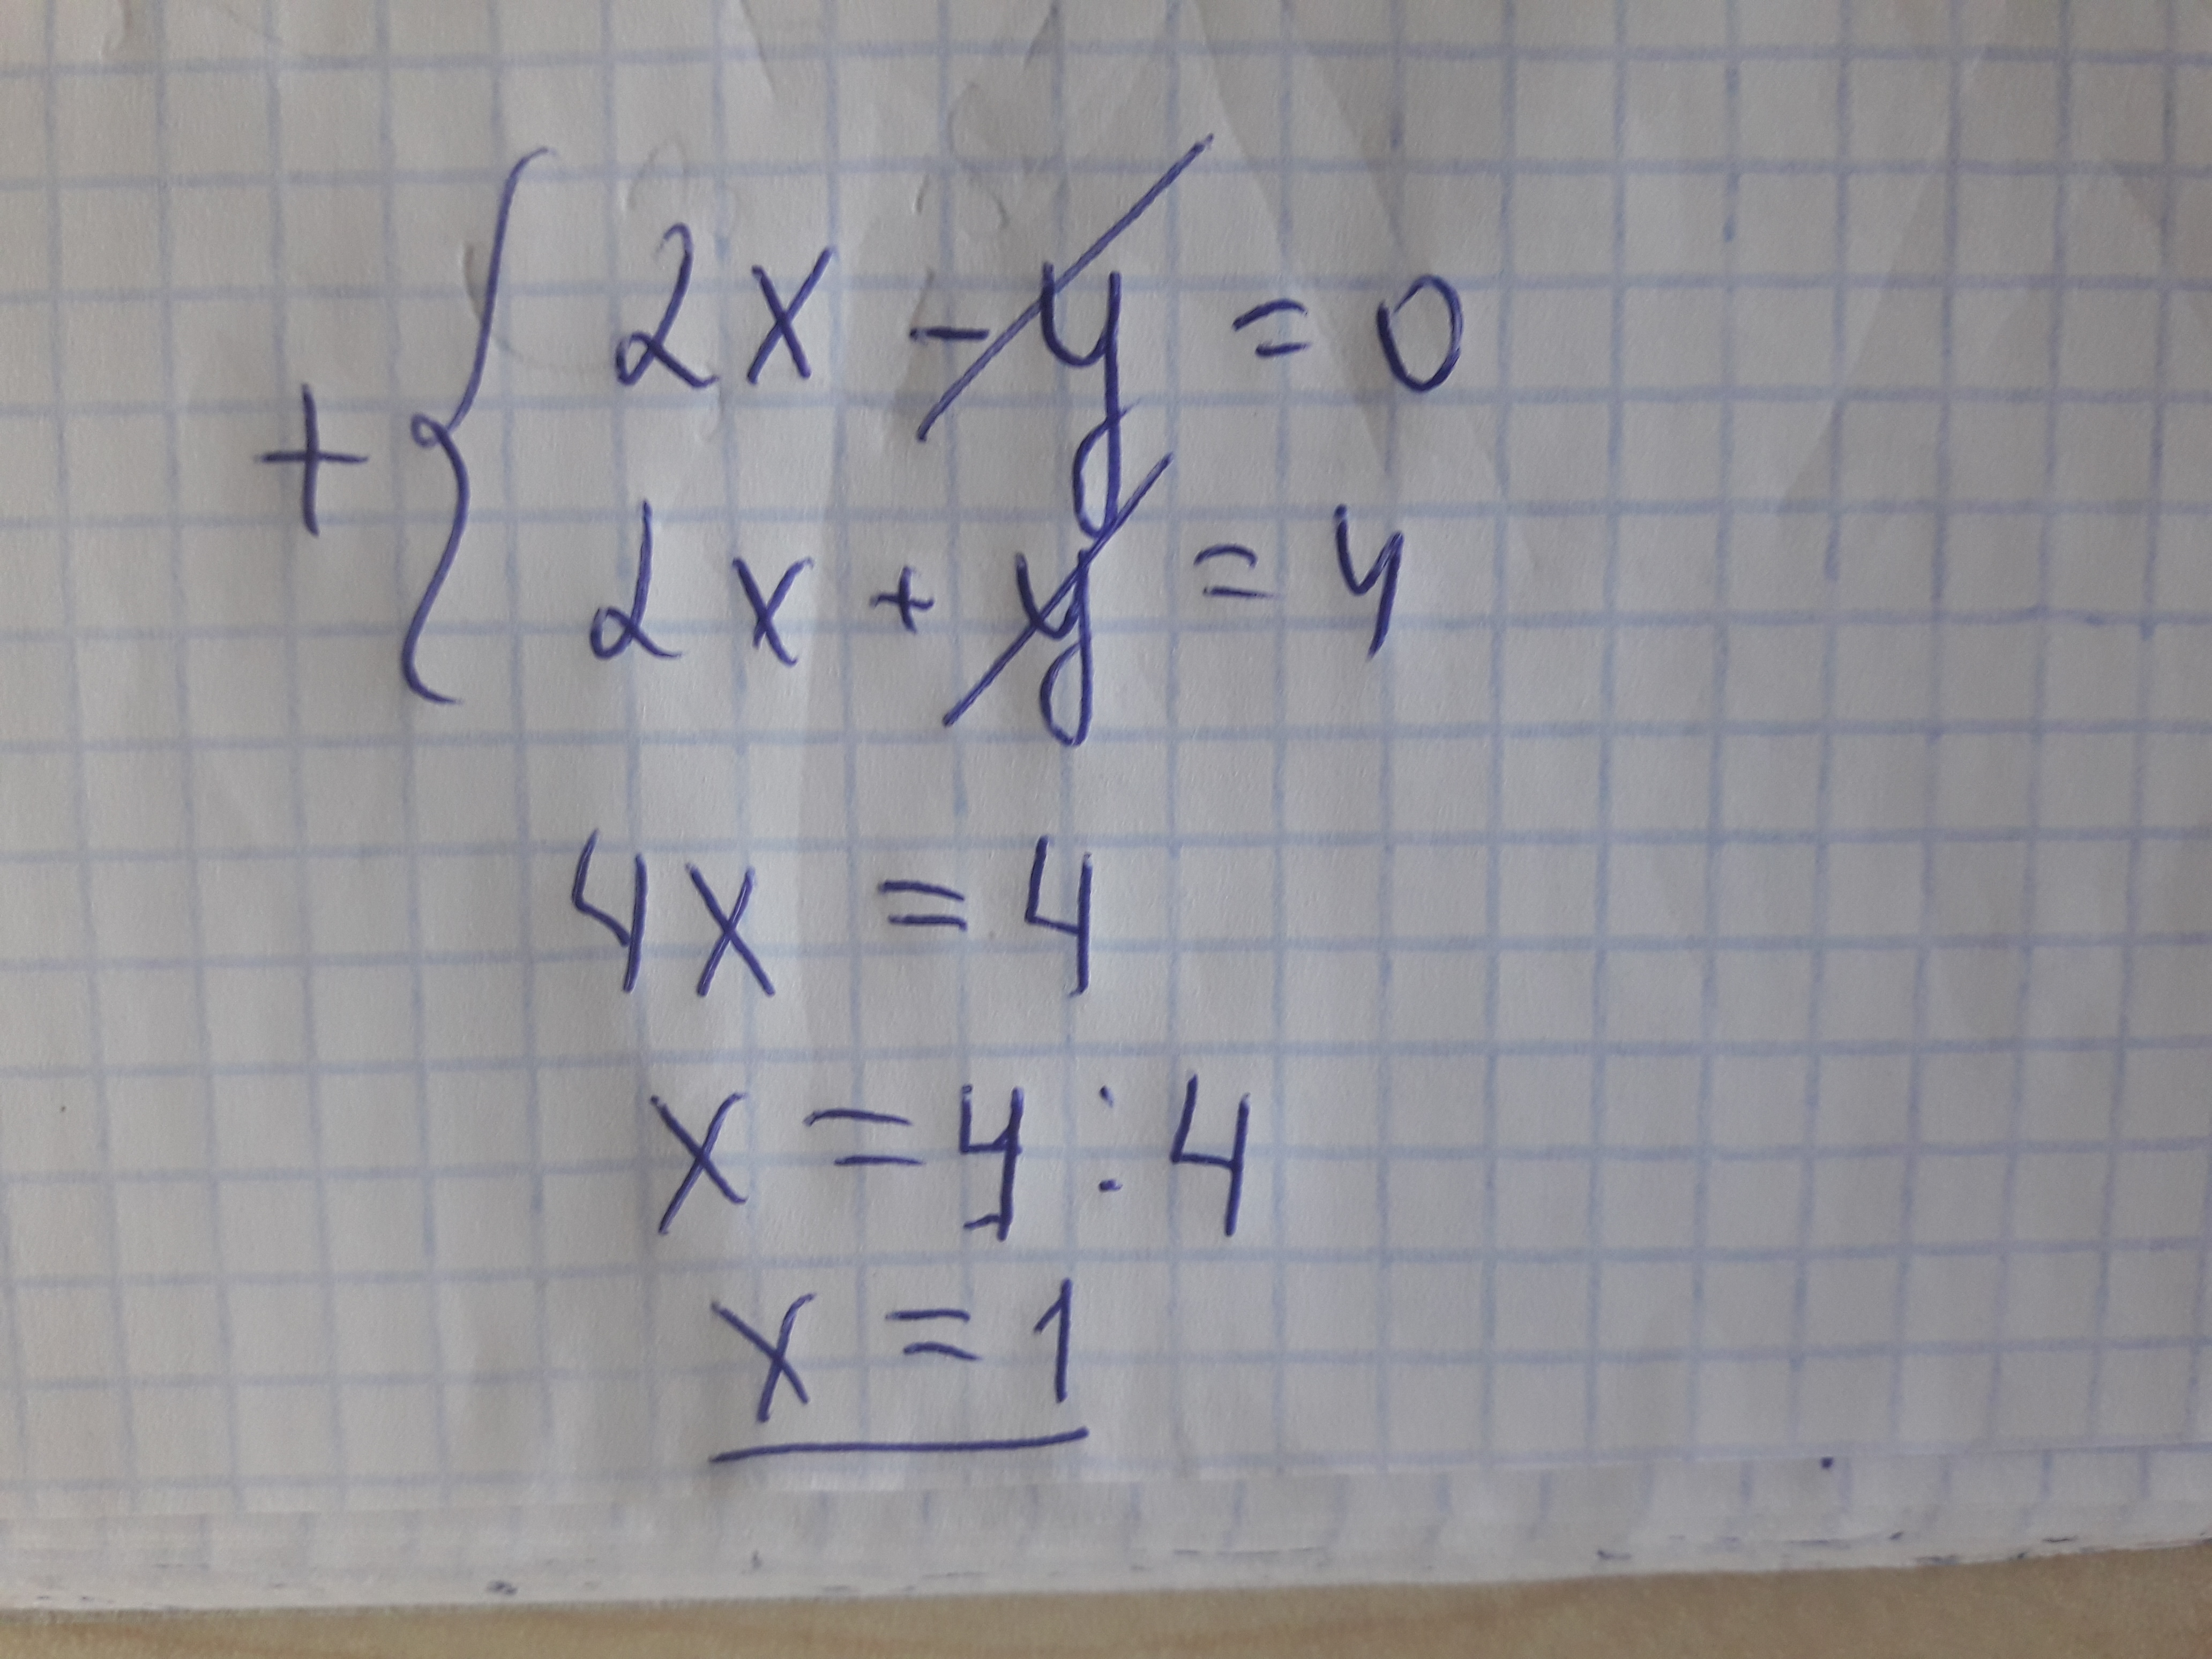 + { 2x - y = 0
2x + y = 4
4x = 4
x = 4 : 4
x = 1